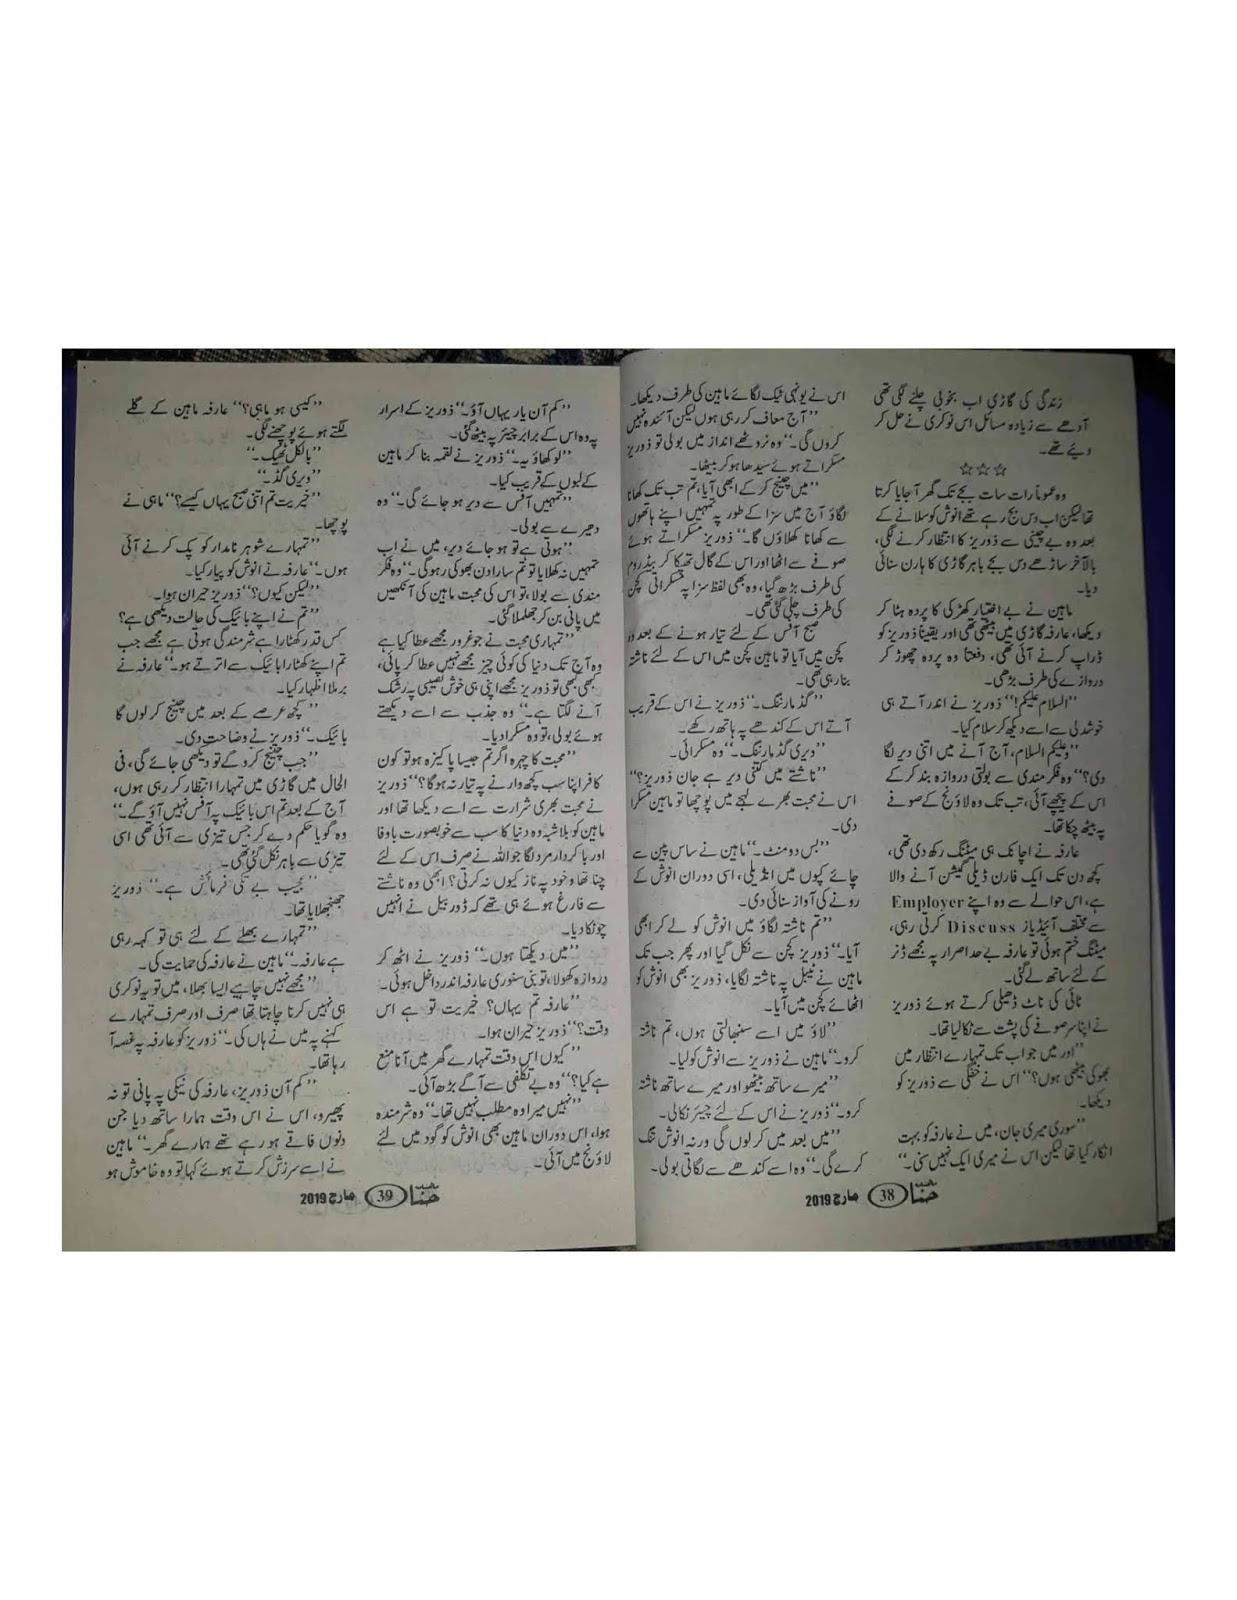 زندگی کی گاڑی اب بخوبی چلنے لگی تھی
آدھے سے زیادہ مسائل اس نوکری نے حل کر
دیئے تھے۔
☆☆☆
وہ عموماً رات سات بجے تک گھر آ جایا کرتا
تھا لیکن اب دس بج رہے تھے انوش کو سلانے کے
بعد وہ بے چینی سے ذوریز کا انتظار کرنے لگی،
بالآخر ساڑھے دس بجے باہر گاڑی کا ہارن سنائی
دیا۔
ماہین نے بے اختیار کھڑکی کا پردہ ہٹا کر
دیکھا، عارفہ گاڑی میں بیٹھی تھی اور یقیناً ذوریز کو
ڈراپ کرنے آئی تھی، دفعتاً وہ پردہ چھوڑ کر
دروازے کی طرف بڑھی۔
’’السلام علیکم!‘‘ ذوریز نے اندر آتے ہی
خوشدلی سے اسے دیکھ کر سلام کیا۔
’’وعلیکم السلام، آج آنے میں اتنی دیر لگا
دی؟‘‘ وہ فکر مندی سے بولتی دروازہ بند کر کے
اس کے پیچھے آئی، تب تک وہ لاؤنج کے صوفے
پہ بیٹھ چکا تھا۔
عارفہ نے اچانک ہی میٹنگ رکھ دی تھی،
کچھ دن تک ایک فارن ڈیلی گیشن آنے والا
ہے، اس حوالے سے وہ اپنے Employer
سے مختلف آئیڈیاز Discuss کرتی رہی،
میٹنگ ختم ہوئی تو عارفہ بے حد اصرار پہ مجھے ڈنر
کے لئے ساتھ لے گئی۔
ٹائی کی ناٹ ڈھیلی کرتے ہوئے ذوریز
نے اپنا سر صوفے کی پشت سے ٹکا لیا تھا۔
’’اور میں جو اب تک تمہارے انتظار میں
بھوکی بیٹھی ہوں؟‘‘ اس نے خفگی سے ذوریز کو
دیکھا۔
’’سوری میری جان، میں نے عارفہ کو بہت
انکار کیا تھا لیکن اس نے میری ایک نہیں سنی۔‘‘
اس نے یونہی ٹیک لگائے ماہین کی طرف دیکھا۔
’’آج معاف کر رہی ہوں لیکن آئندہ نہیں
کروں گی۔‘‘ وہ نروٹھے انداز میں بولی تو ذوریز
مسکراتے ہوئے سیدھا ہو کر بیٹھا۔
’’میں چینج کر کے ابھی آیا، تم تب تک کھانا
لگاؤ آج میں سزا کے طور پہ تمہیں اپنے ہاتھوں
سے کھانا کھلاؤں گا۔‘‘ ذوریز مسکراتے ہوئے
صوفے سے اٹھا اور اس کے گال تھپکا کر بیڈ روم
کی طرف بڑھ گیا، وہ بھی لفظ سزا پہ مسکرائی کچن
کی طرف چلی گئی تھی۔
صبح آفس کے لئے تیار ہونے کے بعد وہ
کچن میں آیا تو ماہین کچن میں اس کے لئے ناشتہ
بنا رہی تھی۔
’’گڈ مارننگ۔‘‘ ذوریز نے اس کے قریب
آتے اس کے کندھے پہ ہاتھ رکھے۔
’’ویری گڈ مارننگ۔‘‘ وہ مسکرائی۔
’’ناشتے میں کتنی دیر ہے جان ذوریز؟‘‘
اس نے محبت بھرے لہجے میں پوچھا تو ماہین مسکرا
دی۔
’’بس دو منٹ۔‘‘ ماہین نے ساس پین سے
چائے کپوں میں انڈیلی، اسی دوران انوش کے
رونے کی آواز سنائی دی۔
’’تم ناشتہ لگاؤ میں انوش کو لے کر ابھی
آیا۔‘‘ ذوریز کچن سے نکل گیا اور پھر جب تک
ماہین نے ٹیبل پہ ناشتہ لگایا، ذوریز بھی انوش کو
اٹھائے کچن میں آیا۔
’’لاؤ میں اسے سنبھالتی ہوں، تم ناشتہ
کرو۔‘‘ ماہین نے ذوریز سے انوش کو لیا۔
’’میرے ساتھ بیٹھو اور میرے ساتھ ناشتہ
کرو۔‘‘ ذوریز نے اس کے لئے چیئر نکالی۔
’’میں بعد میں کر لوں گی ورنہ انوش تنگ
کرے گی۔‘‘ وہ اسے کندھے سے لگاتی بولی۔
حنا 38 مارچ 2019
’’کم آن یار یہاں آؤ۔‘‘ ذوریز کے اسرار
پہ وہ اس کے برابر چیئر پہ بیٹھ گئی۔
’’لو کھاؤ یہ۔‘‘ ذوریز نے لقمہ بنا کر ماہین
کے لبوں کے قریب کیا۔
’’تمہیں آفس سے دیر ہو جائے گی۔‘‘ وہ
دھیرے سے بولی۔
’’ہوتی ہے تو ہو جائے دیر، میں نے اب
تمہیں نہ کھلایا تو تم سارا دن بھوکی رہو گی۔‘‘ وہ فکر
مندی سے بولا، تو اس کی محبت ماہین کی آنکھیں
میں پانی بن کر جھلملا گئی۔
’’تمہاری محبت نے جو غرور مجھے عطا کیا ہے
وہ آج تک دنیا کی کوئی چیز مجھے نہیں عطا کر پائی،
کبھی کبھی تو ذوریز مجھے اپنی ہی خوش نصیبی پہ رشک
آنے لگتا ہے۔‘‘ وہ جذب سے اسے دیکھتے
ہوئے بولی، تو وہ مسکرا دیا۔
’’محبت کا چہرہ اگر تم جیسا پاکیزہ ہو تو کون
کافر اپنا سب کچھ وارنے پہ تیار نہ ہو گا؟‘‘ ذوریز
نے محبت بھری شرارت سے اسے دیکھا تھا اور
ماہین کو بلاشبہ وہ دنیا کا سب سے خوبصورت باوفا
اور باکردار مرد لگا جو اللہ نے صرف اس کے لئے
چنا تھا وہ خود پہ ناز کیوں نہ کرتی؟ ابھی وہ ناشتے
سے فارغ ہوئے ہی تھے کہ ڈور بیل نے انہیں
چونکا دیا۔
’’میں دیکھتا ہوں۔‘‘ ذوریز نے اٹھ کر
دروازہ کھولا، تو بنی سنوری عارفہ اندر داخل ہوئی۔
’’عارفہ تم یہاں؟ خیریت تو ہے اس
وقت؟‘‘ ذوریز حیران ہوا۔
’’کیوں اس وقت تمہارے گھر میں آنا منع
ہے کیا؟‘‘ وہ بے تکلفی سے آگے بڑھ آئی۔
’’نہیں میرا وہ مطلب نہیں تھا۔‘‘ وہ شرمندہ
ہوا، اس دوران ماہین بھی انوش کو گود میں لئے
لاؤنج میں آئی۔
’’کیسی ہو ماہی؟‘‘ عارفہ ماہین کے گلے
لگتے ہوئے پوچھنے لگی۔
’’بالکل ٹھیک۔‘‘
’’ویری گڈ۔‘‘
’’خیریت تم اتنی صبح یہاں کیسے؟‘‘ ماہی نے
پوچھا۔
’’تمہارے شوہر نامدار کو پک کرنے آئی
ہوں۔‘‘ عارفہ نے انوش کو پیار کیا۔
’’لیکن کیوں؟‘‘ ذوریز حیران ہوا۔
’’تم نے اپنے بائیک کی حالت دیکھی ہے؟
کس قدر کھٹارا ہے شرمندگی ہوتی ہے مجھے جب
تم اپنے کھٹارا بائیک سے اترتے ہو۔‘‘ عارفہ نے
برملا اظہار کیا۔
’’کچھ عرصے کے بعد میں چینج کر لوں گا
بائیک۔‘‘ ذوریز نے وضاحت دی۔
’’جب چینج کرو گے تو دیکھی جائے گی، فی
الحال میں گاڑی میں تمہارا انتظار کر رہی ہوں،
آج کے بعد تم اس بائیک پہ آفس نہیں آؤ گے۔‘‘
وہ گویا حکم دے کر جس تیزی سے آئی تھی اسی
تیزی سے باہر نکل گئی تھی۔
’’عجیب بے تکی فرمائش ہے۔‘‘ ذوریز
جھنجھلایا تھا۔
’’تمہارے بھلے کے لئے ہی تو کہہ رہی
ہے عارفہ۔‘‘ ماہین نے عارفہ کی حمایت کی۔
’’مجھے نہیں چاہیے ایسا بھلا، میں تو یہ نوکری
ہی نہیں کرنا چاہتا تھا صرف اور صرف تمہارے
کہنے پہ میں نے ہاں کی۔‘‘ ذوریز کو عارفہ پہ غصہ آ
رہا تھا۔
’’کم آن ذوریز، عارفہ کی نیکی پہ پانی تو نہ
پھیرو، اس نے اس وقت ہمارا ساتھ دیا جن
دنوں فاقے ہو رہے تھے ہمارے گھر۔‘‘ ماہین
نے اسے سرزش کرتے ہوئے کہا تو وہ خاموش ہو
حنا 39 مارچ 2019